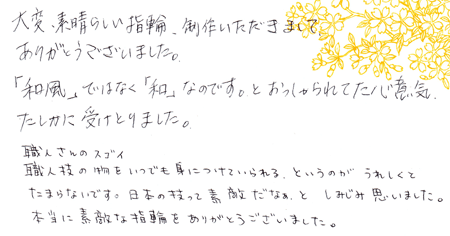 大変、素晴らしい指輪、制作いただきまして
ありがとうございました。
「和風」ではなく「和」なのです。とおっしゃられてた心意気、
たしかに受けとりました。
職人さんのスゴイ
職人技の物をいつでも身につけていられる、というのがうれしくて
たまらないです。日本の技って素敵だなぁ、と しみじみ思いました。
本当に素敵な指輪をありがとうございました。